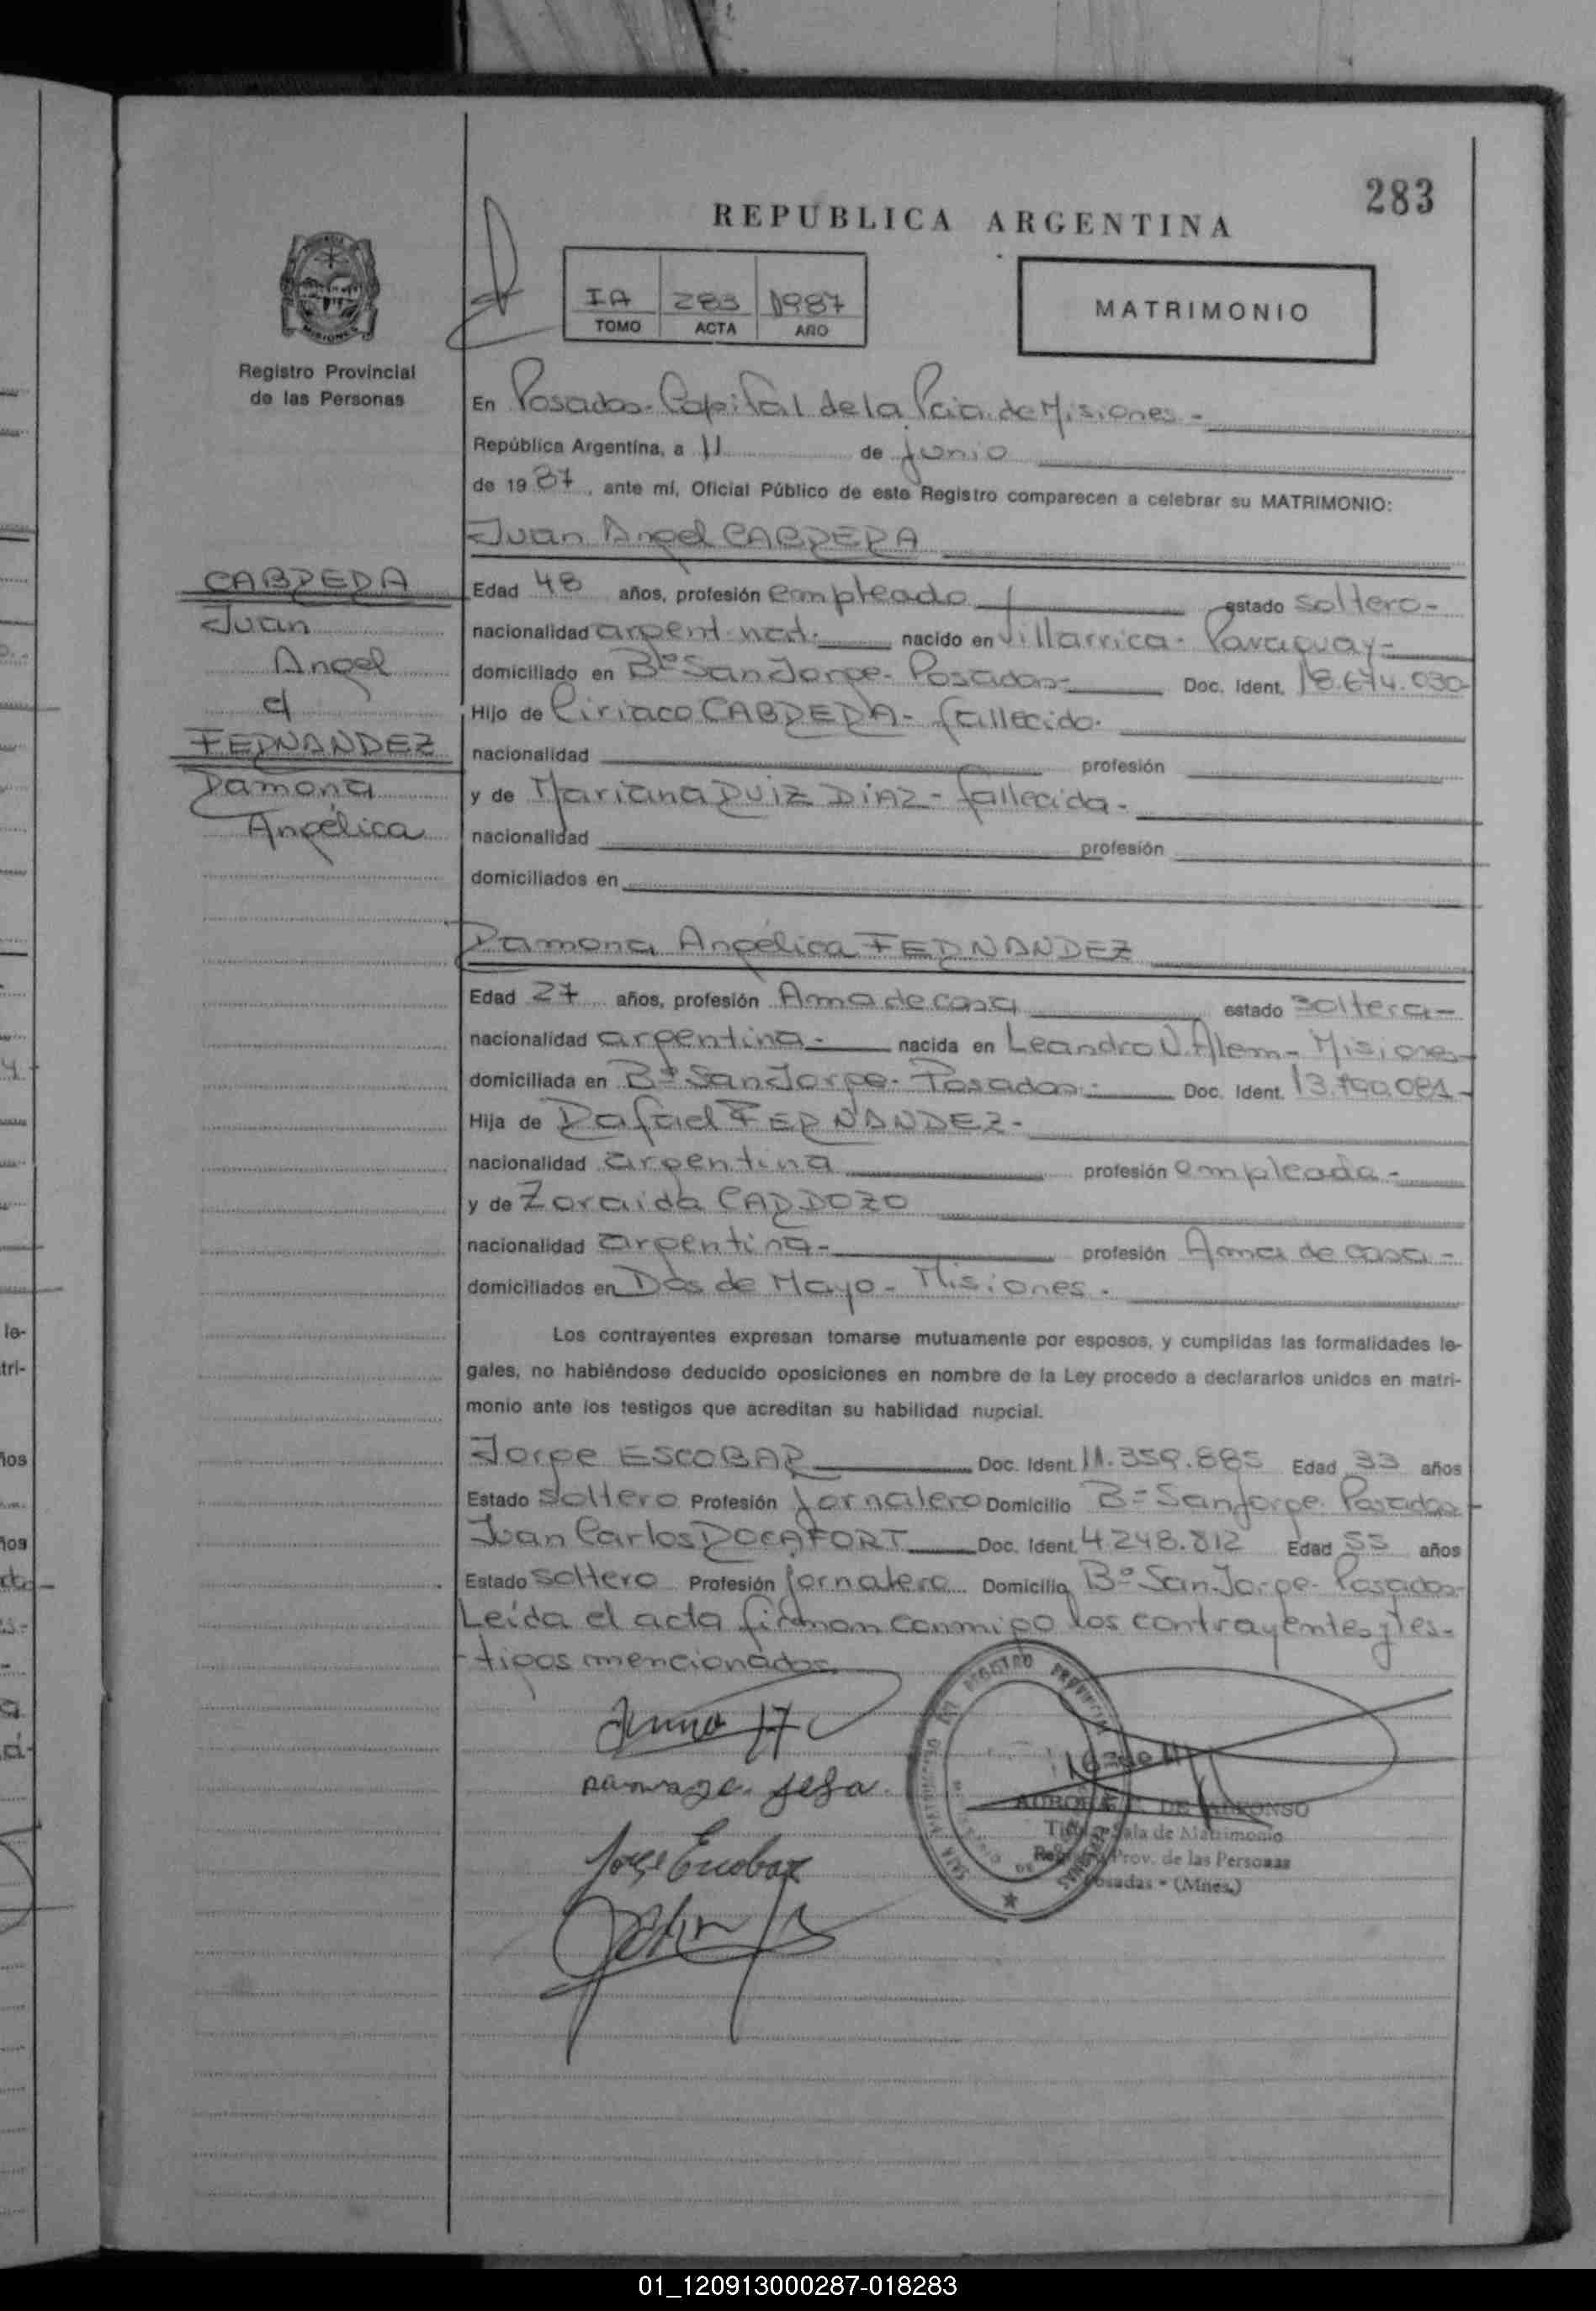 283
REPUBLICA ARGENTINA
IA 283 1987
TOMO ACTA AÑO
MATRIMONIO
Registro Provincial
de las Personas
En Posadas - Capital de la Pcia. de Misiones -
República Argentina, a 11 de junio
de 1987, ante mí, Oficial Público de este Registro comparecen a celebrar su MATRIMONIO:
Juan Angel CABRERA
CABRERA
Juan
Angel
c/
FERNANDEZ
Ramona
Angélica
Edad 48 años, profesión empleado estado soltero -
nacionalidad argent. nat. nacido en Villarrica - Paraguay -
domiciliado en Bº San Jorge - Posadas - Doc. Ident. 18.674.030 -
Hijo de Ciriaco CABRERA - fallecido.
nacionalidad profesión
y de Mariana RUIZ DIAZ - fallecida -
nacionalidad profesión
domiciliados en
Ramona Angélica FERNANDEZ
Edad 27 años, profesión Ama de casa estado soltera -
nacionalidad argentina - nacida en Leandro N. Alem - Misiones -
domiciliada en Bº San Jorge - Posadas - Doc. Ident. 081 -
Hija de Rafael FERNANDEZ -
nacionalidad argentina profesión empleado -
y de Zoraida CARDOZO
nacionalidad argentina - profesión Ama de casa -
domiciliados en Dos de Mayo - Misiones -
Los contrayentes expresan tomarse mutuamente por esposos, y cumplidas las formalidades le-
gales, no habiéndose deducido oposiciones en nombre de la Ley procedo a declararlos unidos en matri-
monio ante los testigos que acreditan su habilidad nupcial.
Jorge ESCOBAR Doc. Ident. 11.359.885 Edad 33 años
Estado soltero Profesión Jornalero Domicilio Bº San Jorge - Posadas -
Juan Carlos ROCAFORT Doc. Ident. 4.248.812 Edad 55 años
Estado soltero Profesión Jornalero Domicilio Bº San Jorge - Posadas -
Leída el acta firman conmigo los contrayentes y tes-
tigos mencionados.
Jorge Escobar
DE ALFONSO
Sala de Matrimonio
Prov. de las Personas
Posadas - (Mnes.)
01_120913000287-018283